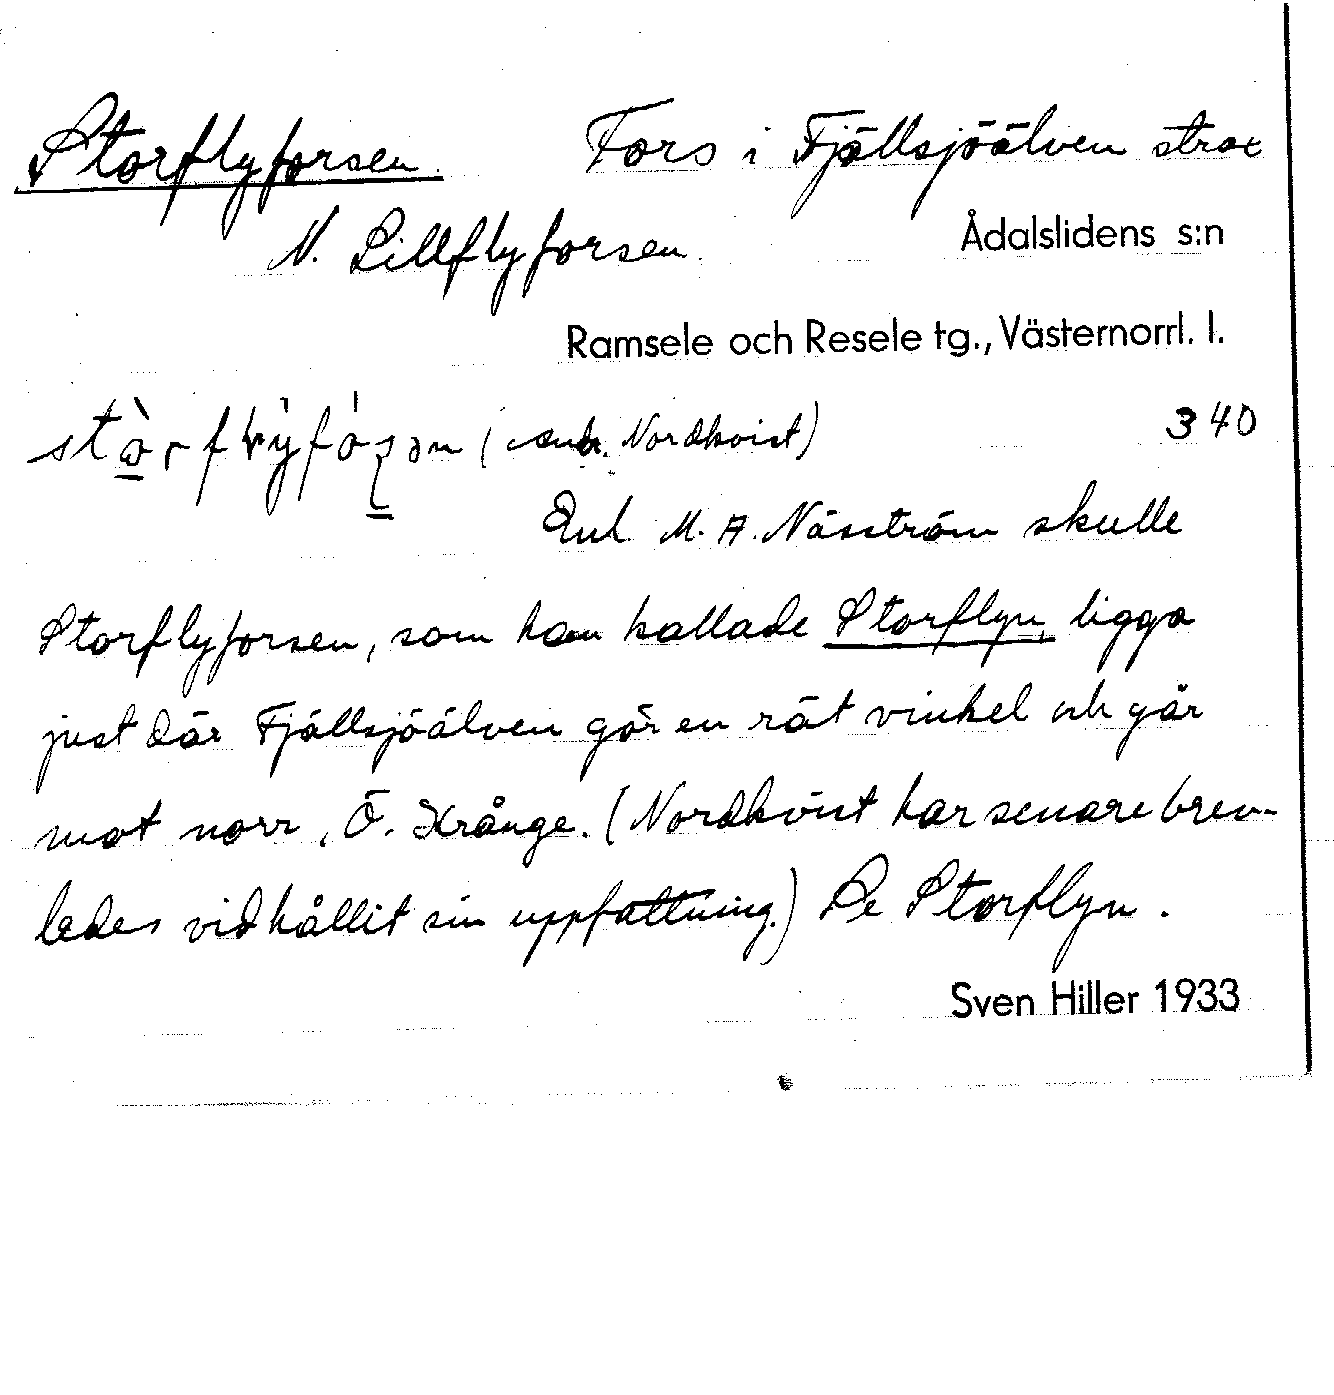 Storflyforsen. Fors i Fjällsjöälven strax
N. Lillflyforsen. Ådalslidens s:n
Ramsele och Resele tg., Västernorrl. l.
(enl. Nordkvist) 340
Enl M. A. Näsström skulle
Storflyforsen, som han kallade Storflyn, ligga
just där Fjällsjöälven gör en rät vinkel och går
mot norr, Ö. Krånge. (Nordkvist har senare brev-
ledes vidhållit sin uppfattning.) Se Storflyn.
Sven Hiller 1933